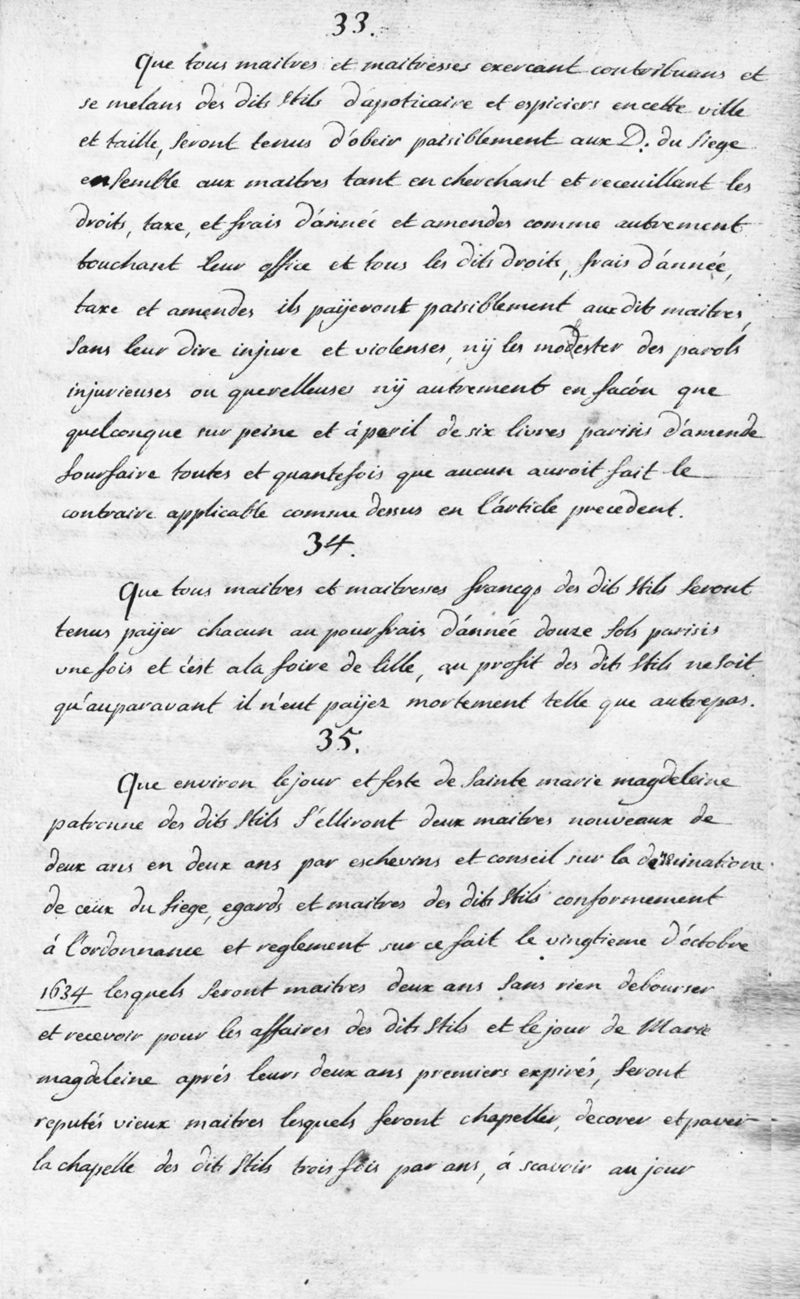 33.
Que tous maitres et maitresses exercant contribuans et
se melans des dits Stils d'apoticaire et espiciers en cette ville
et taille, seront tenus d'obeir paisiblement aux D. du Siege
ensemble aux maitres tant en cherchant et receuillant les
droits, taxe, et frais d'année et amendes comme autrement
touchant leur office et tous les dits droits, frais d'année,
taxe et amendes ils paijeront paisiblement aux dits maitres,
sans leur dire injure et violenses, nij les modester des parols
injurieuses ou querelleuses nij autrement en facón que
quelconque sur peine et á peril de six livres parisis d'amende
fourfaire toutes et quantefois que aucun auroit fait le
contraire applicable comme dessus en l'article precedent.
34.
Que tous maitres et maitresses francqs des dits Stils seront
tenus paijer chacun au pour frais d'année douze sols parisis
une fois et c'est a la foire de lille, au profit des dits Stils ne soit
qu'auparavant il n'eut paijez mortement telle que autrepas.
35.
Que environ le jour et feste de Sainte marie magdeleine
patronne des dits Stils s'elliront deux maitres nouveaux de
deux ans en deux ans par eschevins et conseil sur la
de ceux du Siege, egards et maitres des dits Stils conformement
á l'ordonnance et reglement sur ce fait le vingtieme d'octobre
1634 lesquels seront maitres deux ans sans rien debourser
et recevoir pour les affaires des dits Stils et le jour de Marie
magdeleine aprés leurs deux ans premiers expirés, seront
reputés vieux maitres lesquels feront chapeller, decorer et paver
la chapelle des dits Stils trois fois par ans, á scavoir au jour